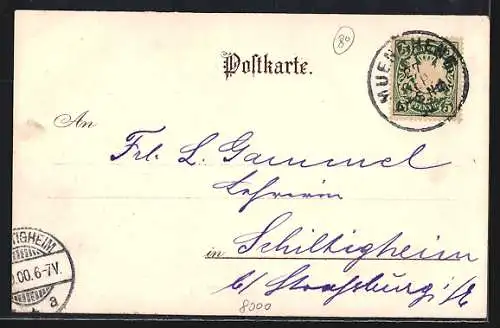 80
Postkarte.
MUENCHEN
5 5
PFENNIG
An
Frl. L. Gammel
Lehrerin
in Schiltigheim
b/ Strassburg i/E
TIGHEIM
.00.6-7V.
a
8000